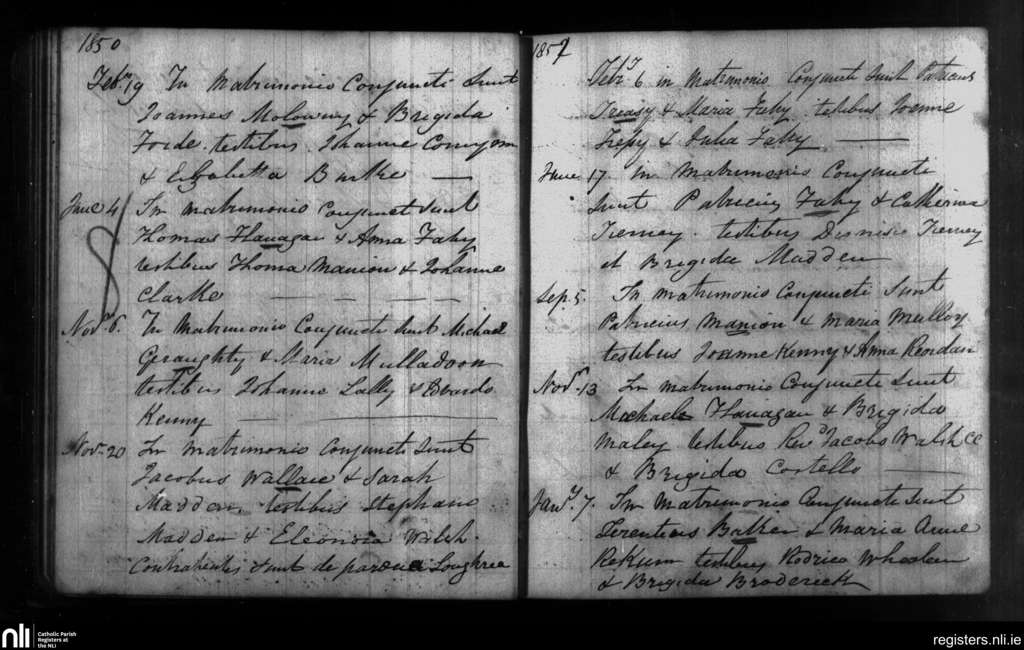 1850
Feb.ry 19 In Matrimonio Conjuncti Sunt
Joannes Molowny & Brigida
Forde . testibus . Johanne
& Elizabetta Burke —
June 4 In matrimonio Conjuncti Sunt
Thomas Flanagan & Anna Fahy
testibus Thoma Manion & Johanne
Clarke — — — —
Nov.r 6. In Matrimonio Conjuncti Sunt Michael
Geraughty & Maria Mulladoon
testibus Johanne Lally &
Kenny — —
Nov.r 20 In matrimonio Conjuncti Sunt
Jacobus Wallace & Sarah
Madden, testibus Stephano
Madden & Eleonora Walsh.
Contrahentes Sunt de Loughrea
Feb.ry 6 in Matrimonio Conjuncti Sunt Patricius
Treasy & Maria Fahy . testibus Joanne
& Julia Fahy —
June 17. In Matrimonio Conjuncti
Sunt Patricius Fahy & Catherina
Tierney . testibus Dionisio Tierney
et Brigida Madden
Sep. 5. In matrimonio Conjuncti Sunt
Patricius Manion & Maria Mulloy
testibus Joanne Kenny & Anna
Nov.r 13 In matrimonio Conjuncti Sunt
Michael Flanagan & Brigida
Maley testibus Rev.d Jacobo Walsh CC
& Brigida Costello —
Jan.y 7. In Matrimonio Conjuncti Sunt
Terentius & Maria Anne
testibus Rodrico
& Brigida Broderick
nli Catholic Parish
Registers at
the NLI
registers.nli.ie